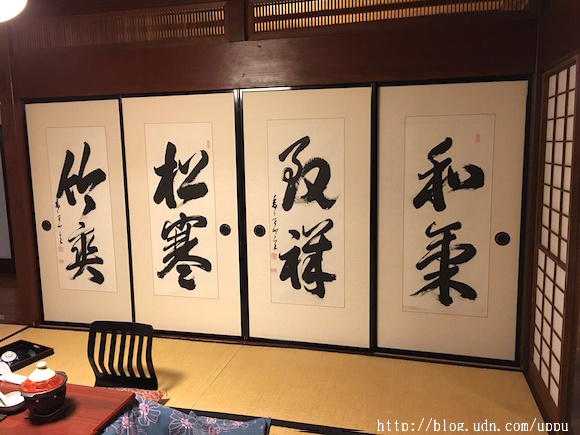 和氣
致祥
松寒
竹爽
http://blog.udn.com/uppu